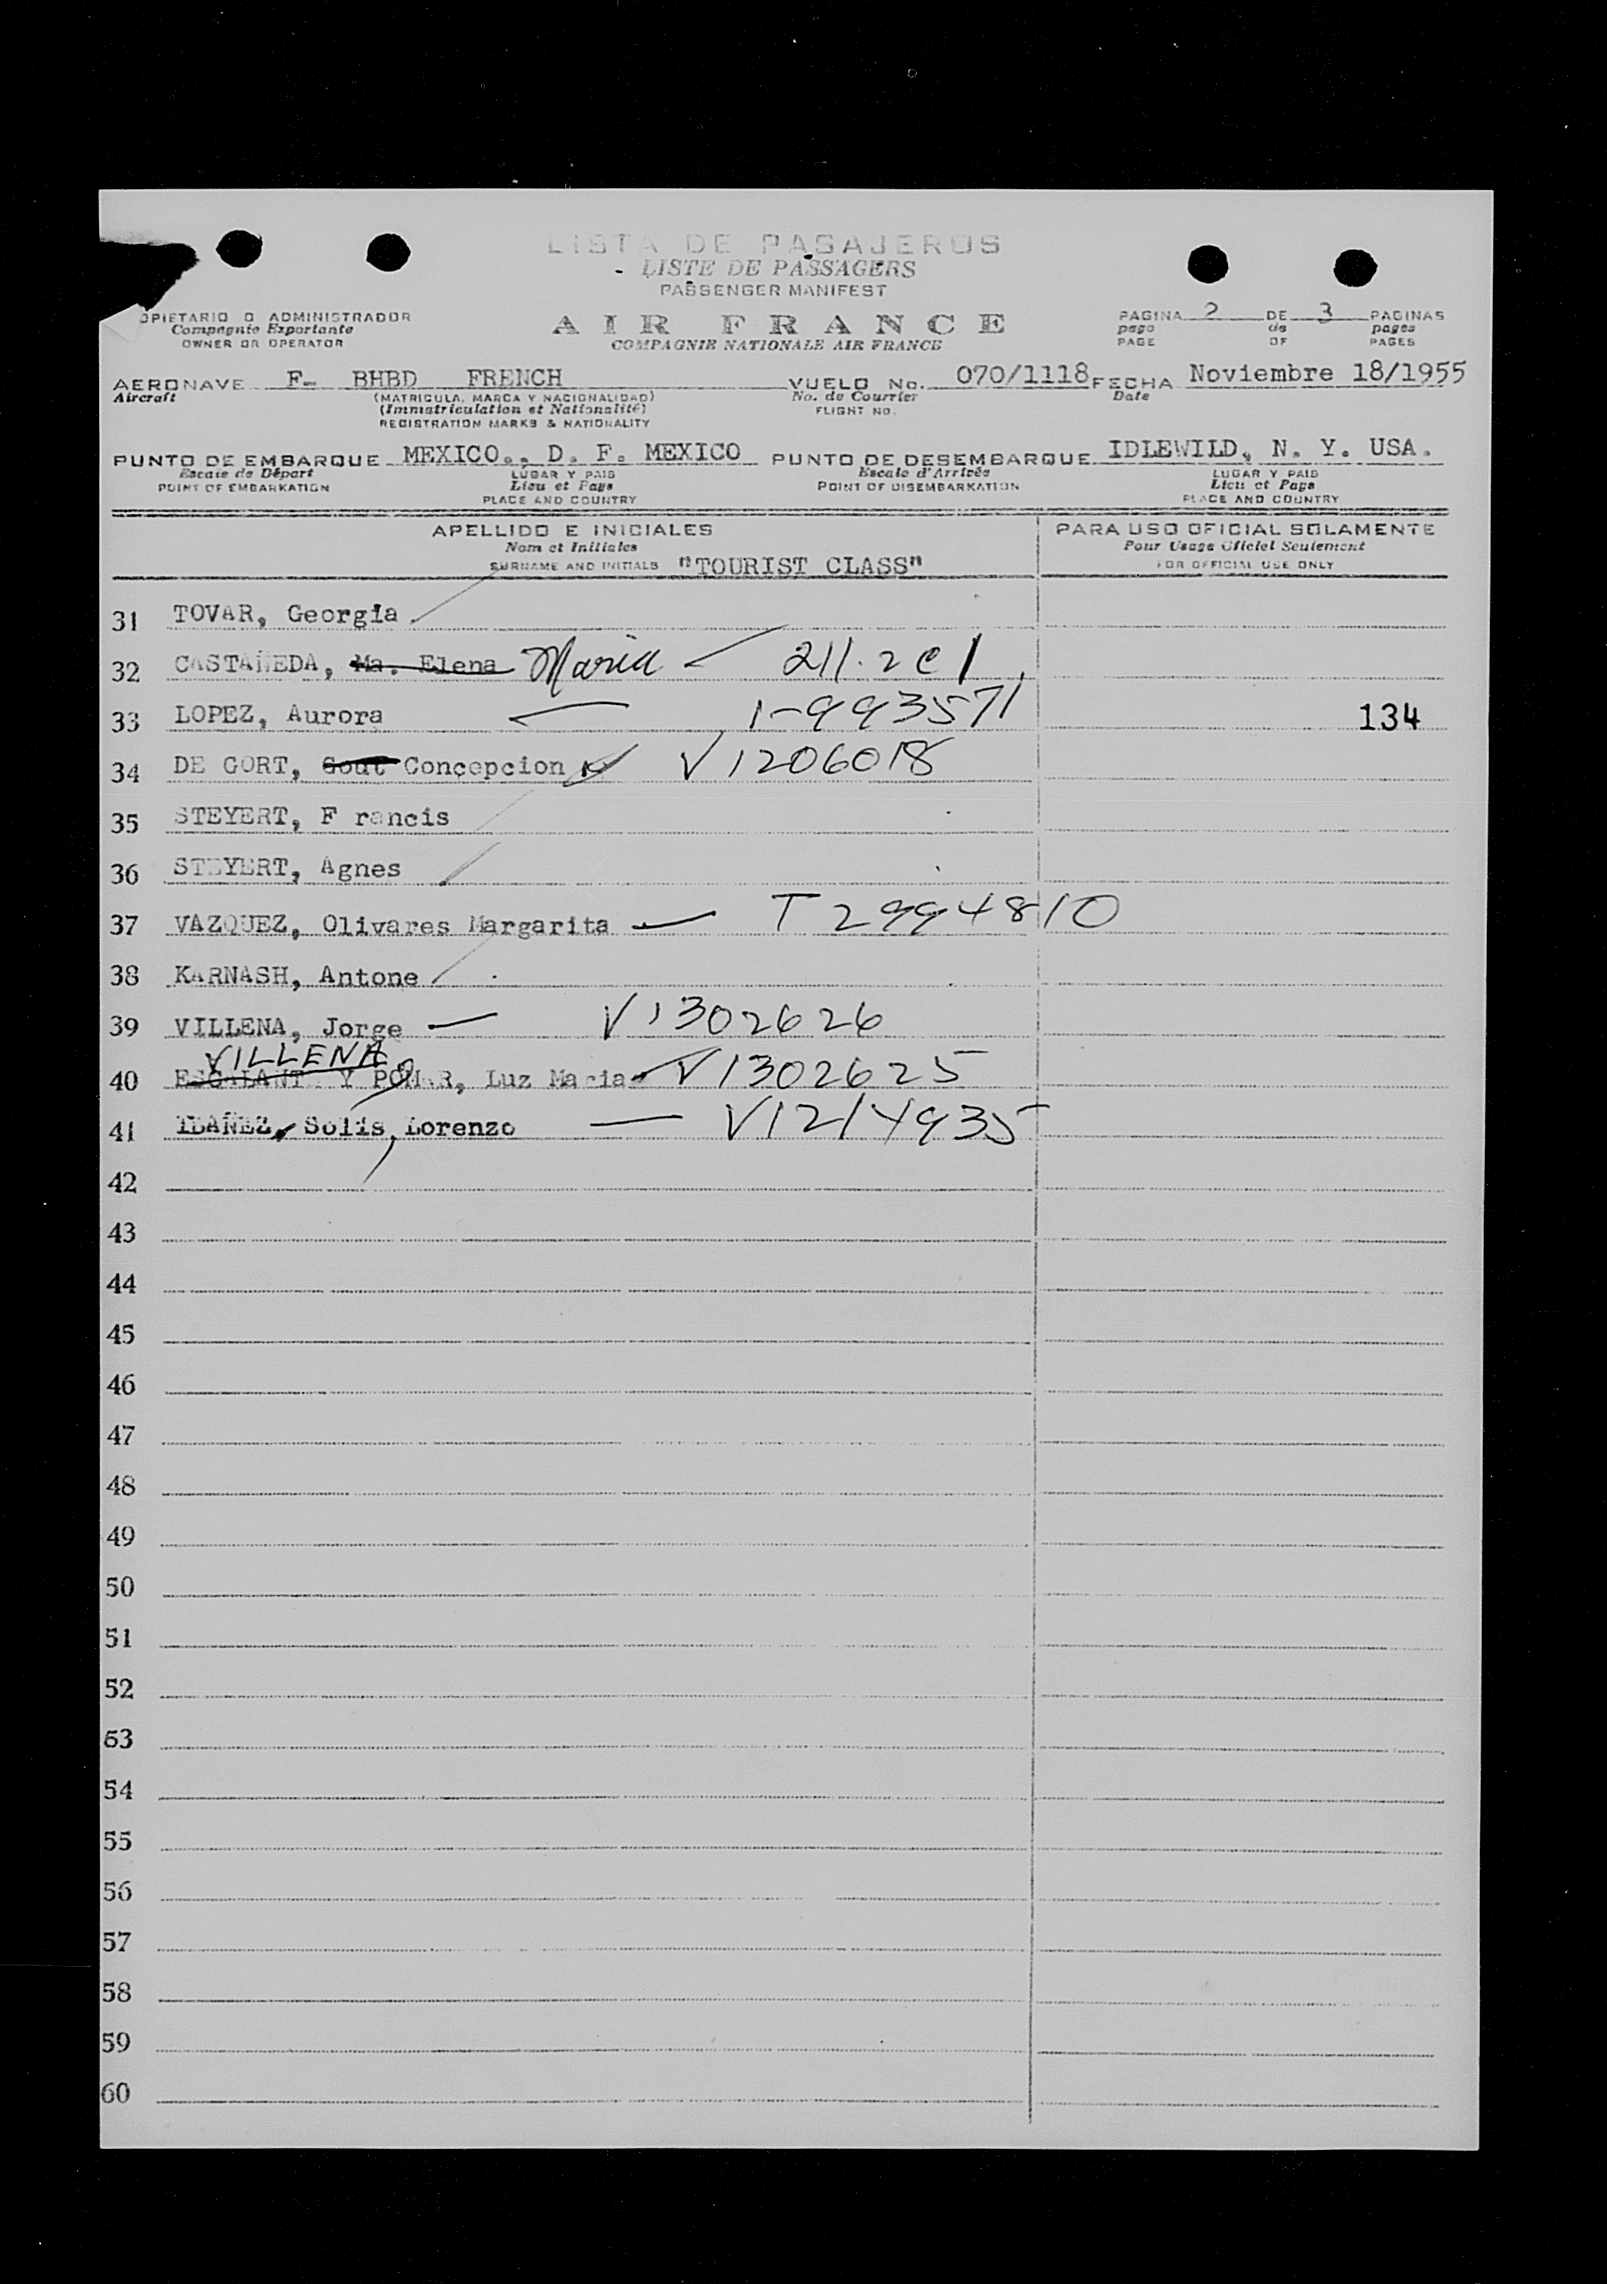 LISTA DE PASAJEROS
LISTE DE PASSAGERS
PASSENGER MANIFEST
OPIETARIO O ADMINISTRADOR
Compagnie Exportante
OWNER OR OPERATOR
AIR FRANCE
COMPAGNIE NATIONALE AIR FRANCE
PAGINA 2 DE 3 PAGINAS
page de pages
PAGE OF PAGES
AERONAVE F- BHBD FRENCH VUELO No. 070/1118 FECHA Noviembre 18/1955
Aircraft (MATRICULA, MARCA Y NACIONALIDAD) No. de Courrier Date
(Immatriculation et Nationalité) FLIGHT NO.
REGISTRATION MARKS & NATIONALITY
PUNTO DE EMBARQUE MEXICO., D. F. MEXICO PUNTO DE DESEMBARQUE IDLEWILD, N. Y. USA.
Escale de Départ LUGAR Y PAIS Escale d'Arrivée LUGAR Y PAIS
POINT OF EMBARKATION Lieu et Pays POINT OF DISEMBARKATION Lieu et Pays
PLACE AND COUNTRY PLACE AND COUNTRY
APELLIDO E INICIALES PARA USO OFICIAL SOLAMENTE
Nom et Initiales Pour Usage Officiel Seulement
SURNAME AND INITIALS "TOURIST CLASS" FOR OFFICIAL USE ONLY
31 TOVAR, Georgia
32 CASTAÑEDA, Ma. Elena Maria 211.2 c 1
33 LOPEZ, Aurora 1-993571 134
34 DE GORT, Gout Concepcion V1206018
35 STEYERT, F rancis
36 STEYERT, Agnes
37 VAZQUEZ, Olivares Margarita T 2994810
38 KARNASH, Antone
39 VILLENA, Jorge V1302626
VILLENA
40 ESCALANTE Y POMAR, Luz Maria V1302625
41 IBAÑEZ, Solis, Lorenzo V1214935
42
43
44
45
46
47
48
49
50
51
52
53
54
55
56
57
58
59
60